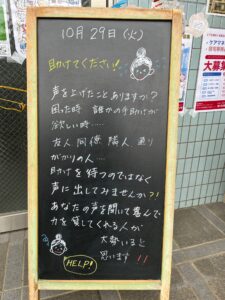 10月29日(火)
助けてください!
声をよげたことありますか?
困った時 誰かの手助けが
欲しい時‥‥
友人 同僚 隣人 通り
がかりの人‥‥
助けを待つのではなく
声に出してみませんか?!
あなたの声を聞いて喜んで
力を貸してくれる人が
大勢いると
思います !!
HELP!
ケアマネ
大募集